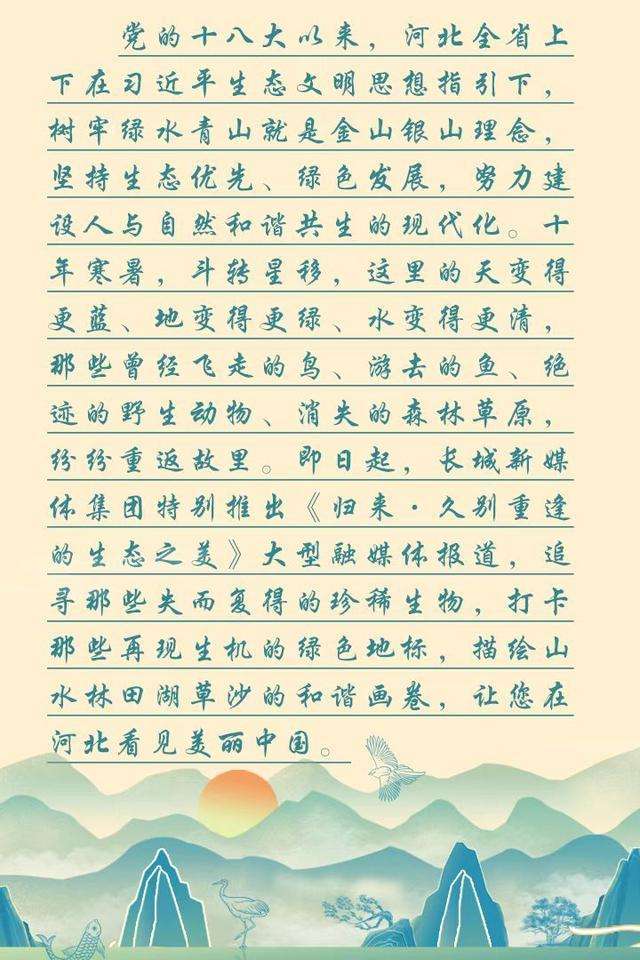 党的十八大以来，河北全省上
下在习近平生态文明思想指引下，
树牢绿水青山就是金山银山理念，
坚持生态优先、绿色发展，努力建
设人与自然和谐共生的现代化。十
年寒暑，斗转星移，这里的天变得
更蓝、地变得更绿、水变得更清，
那些曾经飞走的鸟、游去的鱼、绝
迹的野生动物、消失的森林草原，
纷纷重返故里。即日起，长城新媒
体集团特别推出《归来·久别重逢
的生态之美》大型融媒体报道，追
寻那些失而复得的珍稀生物，打卡
那些再现生机的绿色地标，描绘山
水林田湖草沙的和谐画卷，让您在
河北看见美丽中国。